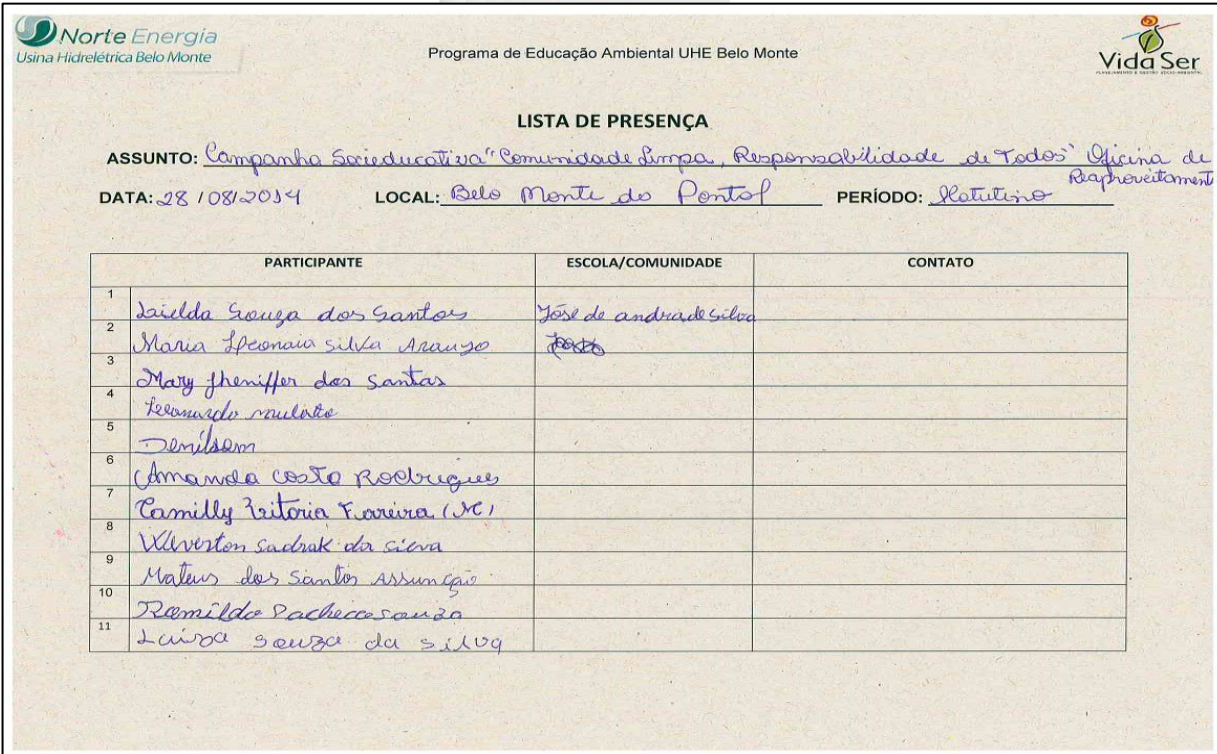 Norte Energia
Usina Hidrelétrica Belo Monte
Programa de Educação Ambiental UHE Belo Monte
Vida Ser
LISTA DE PRESENÇA
ASSUNTO: Campanha Socieducativa "Comunidade Limpa, Responsabilidade de Todos" Oficina de
Reaproveitament
DATA: 28/08/2014 LOCAL: Belo Monte do Pontal PERÍODO: Matutino
PARTICIPANTE ESCOLA/COMUNIDADE CONTATO
1 Souza dos Santos José de andrade Silva
2 Maria Silva Araujo
3 Mary Jheniffer dos santos
4 Leonardo
5 Denilsom
6 Amanda costa Rodrigues
7 Camilly Vitoria Ferreira
8 Weverton Sadrak da silva
9 Mateus dos Santos Assunção
10 Romildo Pacheco souza
11 Luiza souza da silva